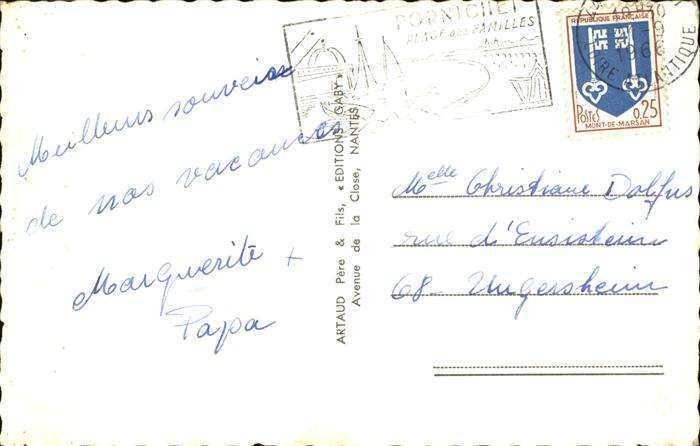 Meilleurs souvenirs
de nos vacances
Marguerite +
Papa
ARTAUD Père & Fils, « EDITIONS GABY »
Avenue de la Close, NANTES
PORNICHET
PLAGE DES FAMILLES
1966
ATLANTIQUE
REPUBLIQUE FRANÇAISE
POSTES 0,25
MONT-DE-MARSAN
Melle Christiane Dolfus
rue d'Ensisheim
68 - Ungersheim